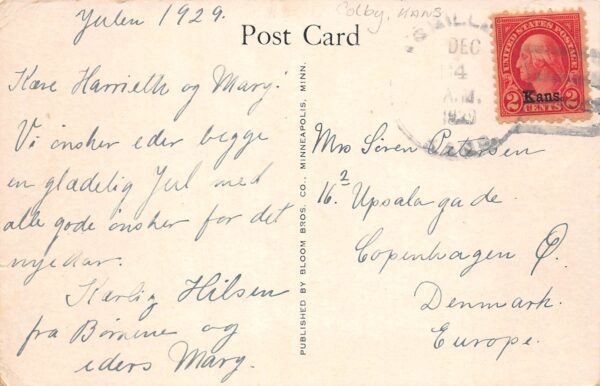 Julen 1929.
Colby, KANS
Post Card
DEC
4
A.M.
1929
UNITED STATES POSTAGE
Kans.
2 CENTS 2
Kære Harrieth og Mary!
Vi ønsker eder begge
en glædelig Jul med
alle gode ønsker for det
nye aar.
Kærlig Hilsen
fra Børnene og
eders Mary.
PUBLISHED BY BLOOM BROS. CO., MINNEAPOLIS, MINN.
Mrs Søren Petersen
16.2 Upsalagade.
Copenhagen Ø.
Denmark.
Europe.